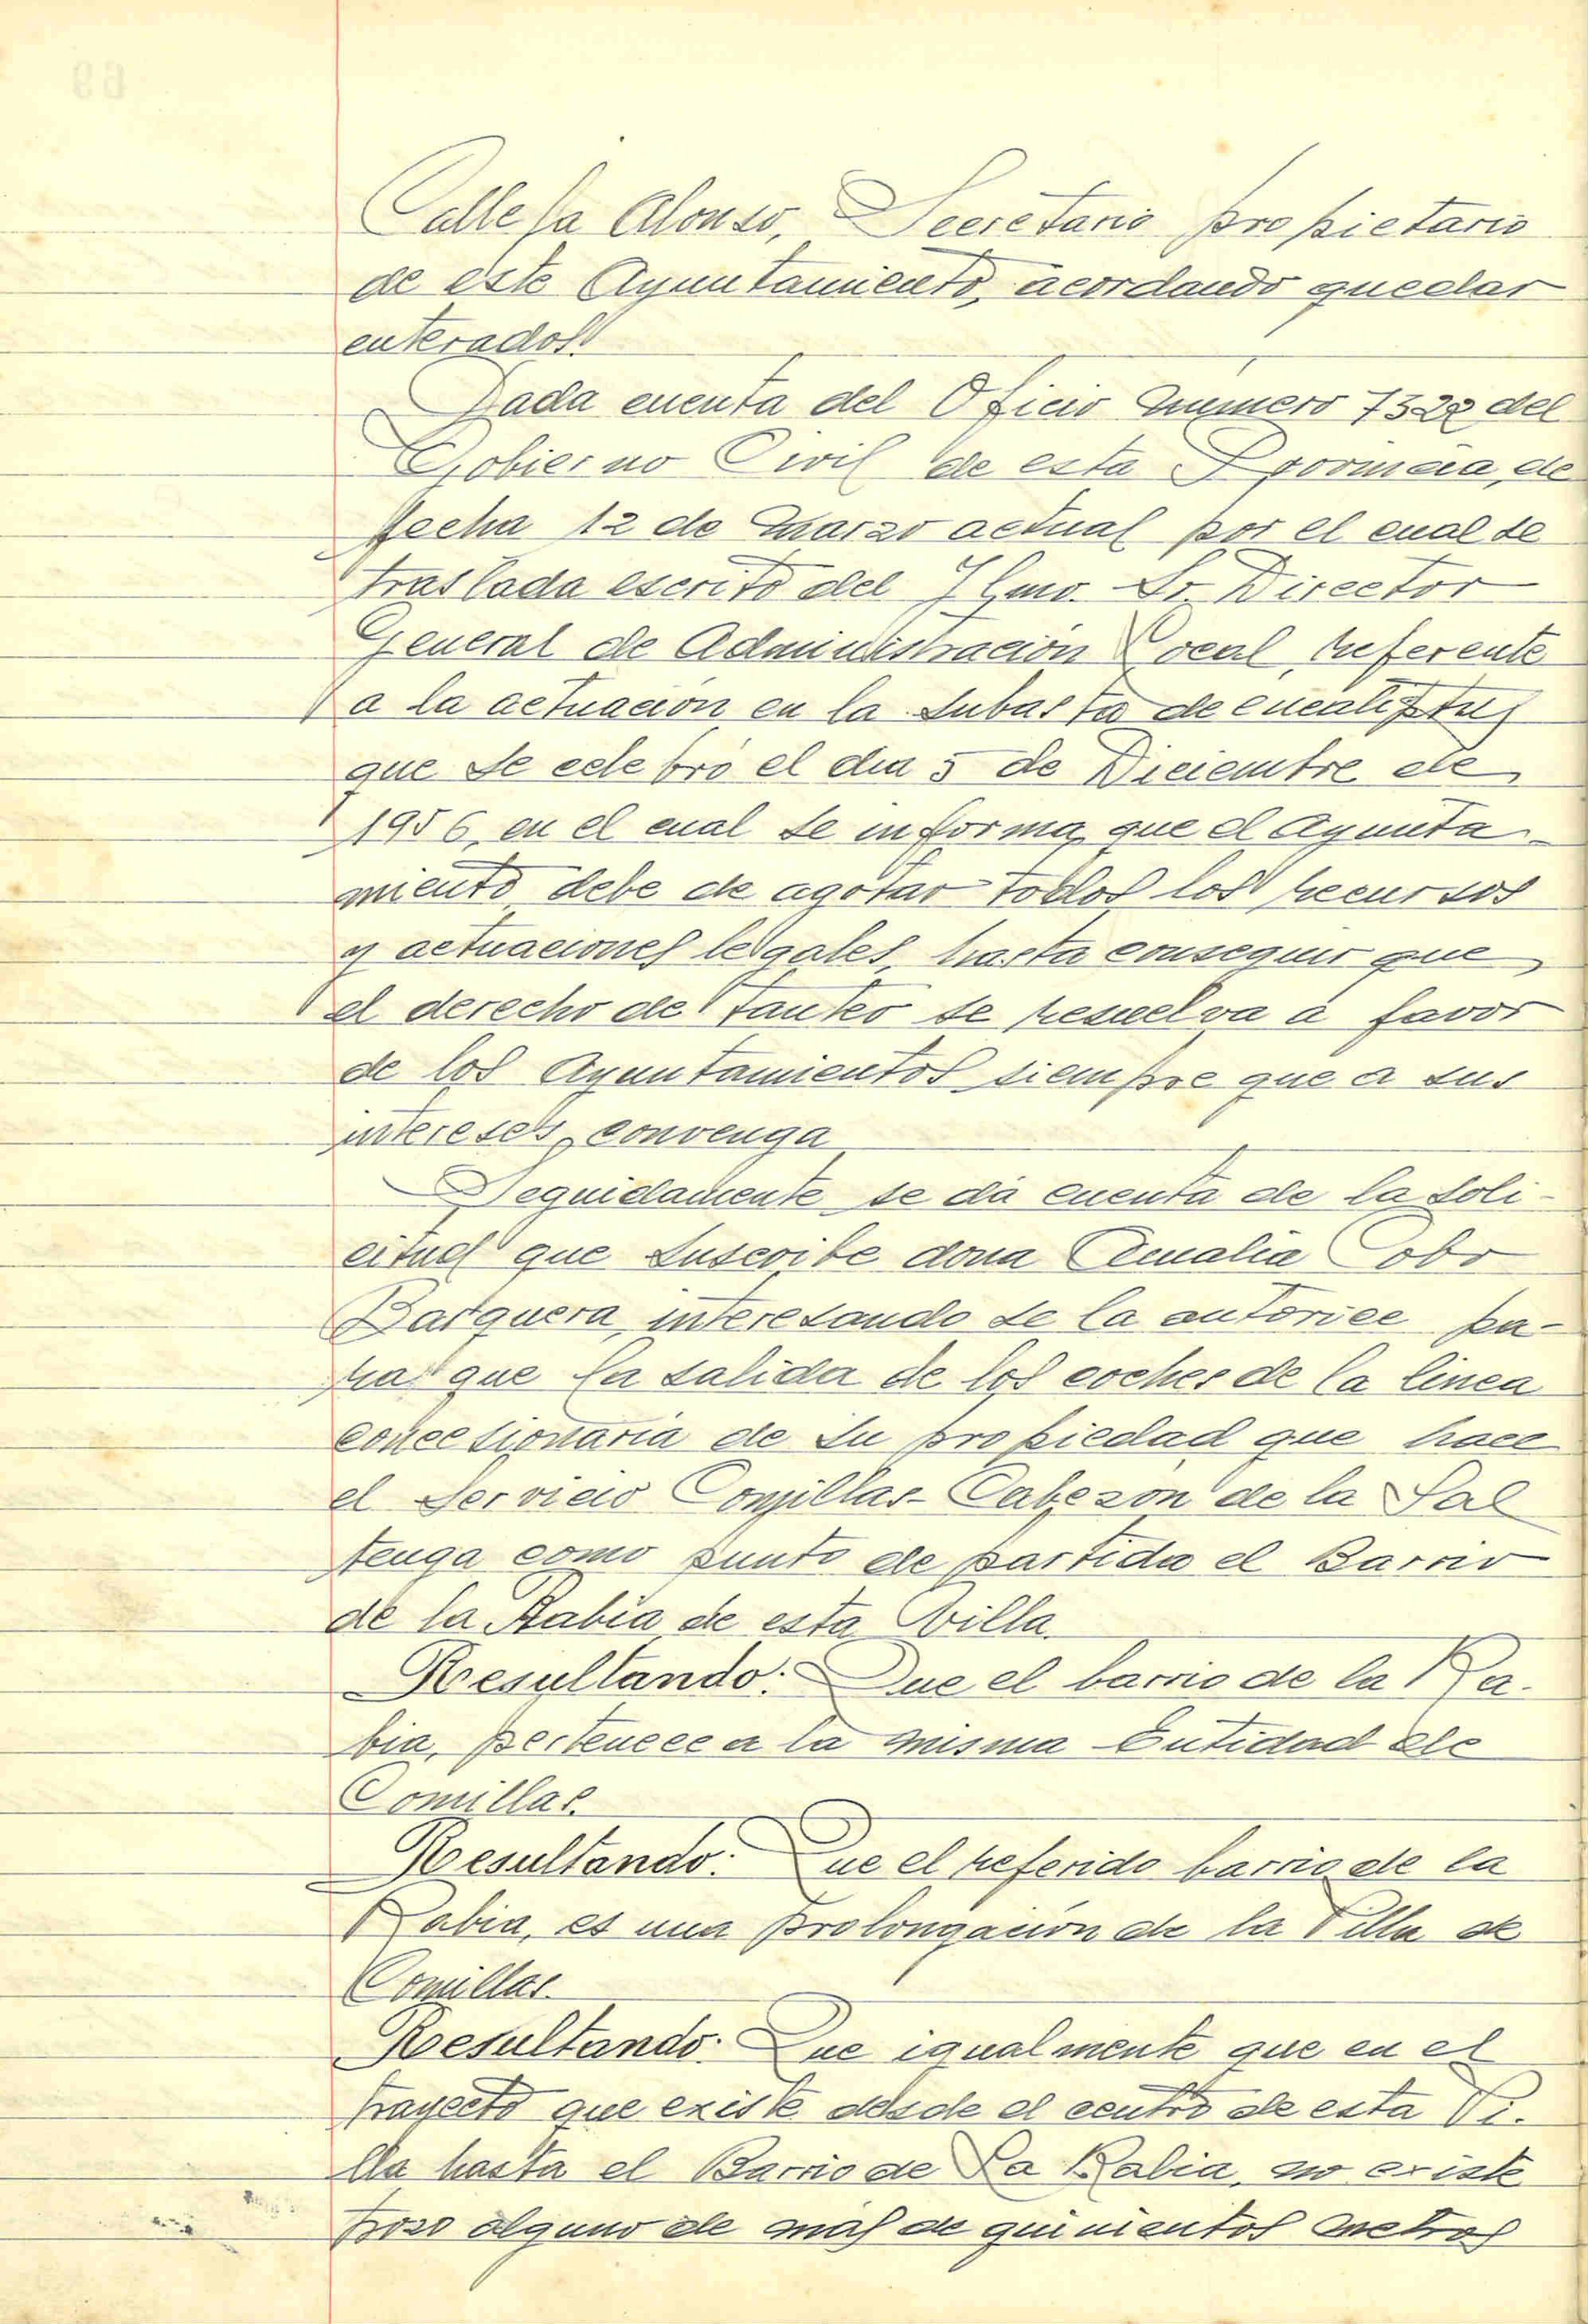 Calleja Alonso, Secretario propietario
de este Ayuntamiento, acordando quedar
enterados.
Dada cuenta del Oficio número 7322 del
Gobierno Civil de esta Provincia, de
fecha 12 de Marzo actual por el cual se
traslada escrito del Ilmo. Sr. Director
General de Administración Local, referente
a la actuación en la subasta de eucaliptus
que se celebró el dia 5 de Diciembre de
1956, en el cual se informa que el Ayunta-
miento debe de agotar todos los recursos
y actuaciones legales, hasta conseguir que
el derecho de tanteo se resuelva a favor
de los Ayuntamientos siempre que a sus
intereses convenga
Seguidamente se dá cuenta de la soli-
citud que suscribe dona Amalia Cobo
Barquera, interesando se la autorice pa-
ra que la salida de los coches de la linea
concesionaria de su propiedad que hace
el servicio Comillas-Cabezón de la Sal
tenga como punto de partida el Barrio
de la Rabia de esta Villa.
Resultando: Que el barrio de la Ra-
bia, pertenece a la misma Entidad de
Comillas.
Resultando: Que el referido barrio de la
Rabia, es una prolongación de la Villa de
Comillas.
Resultando: Que igualmente que en el
trayecto que existe desde el centro de esta Vi-
lla hasta el Barrio de La Rabia, no existe
trozo alguno de más de quinientos metros
69